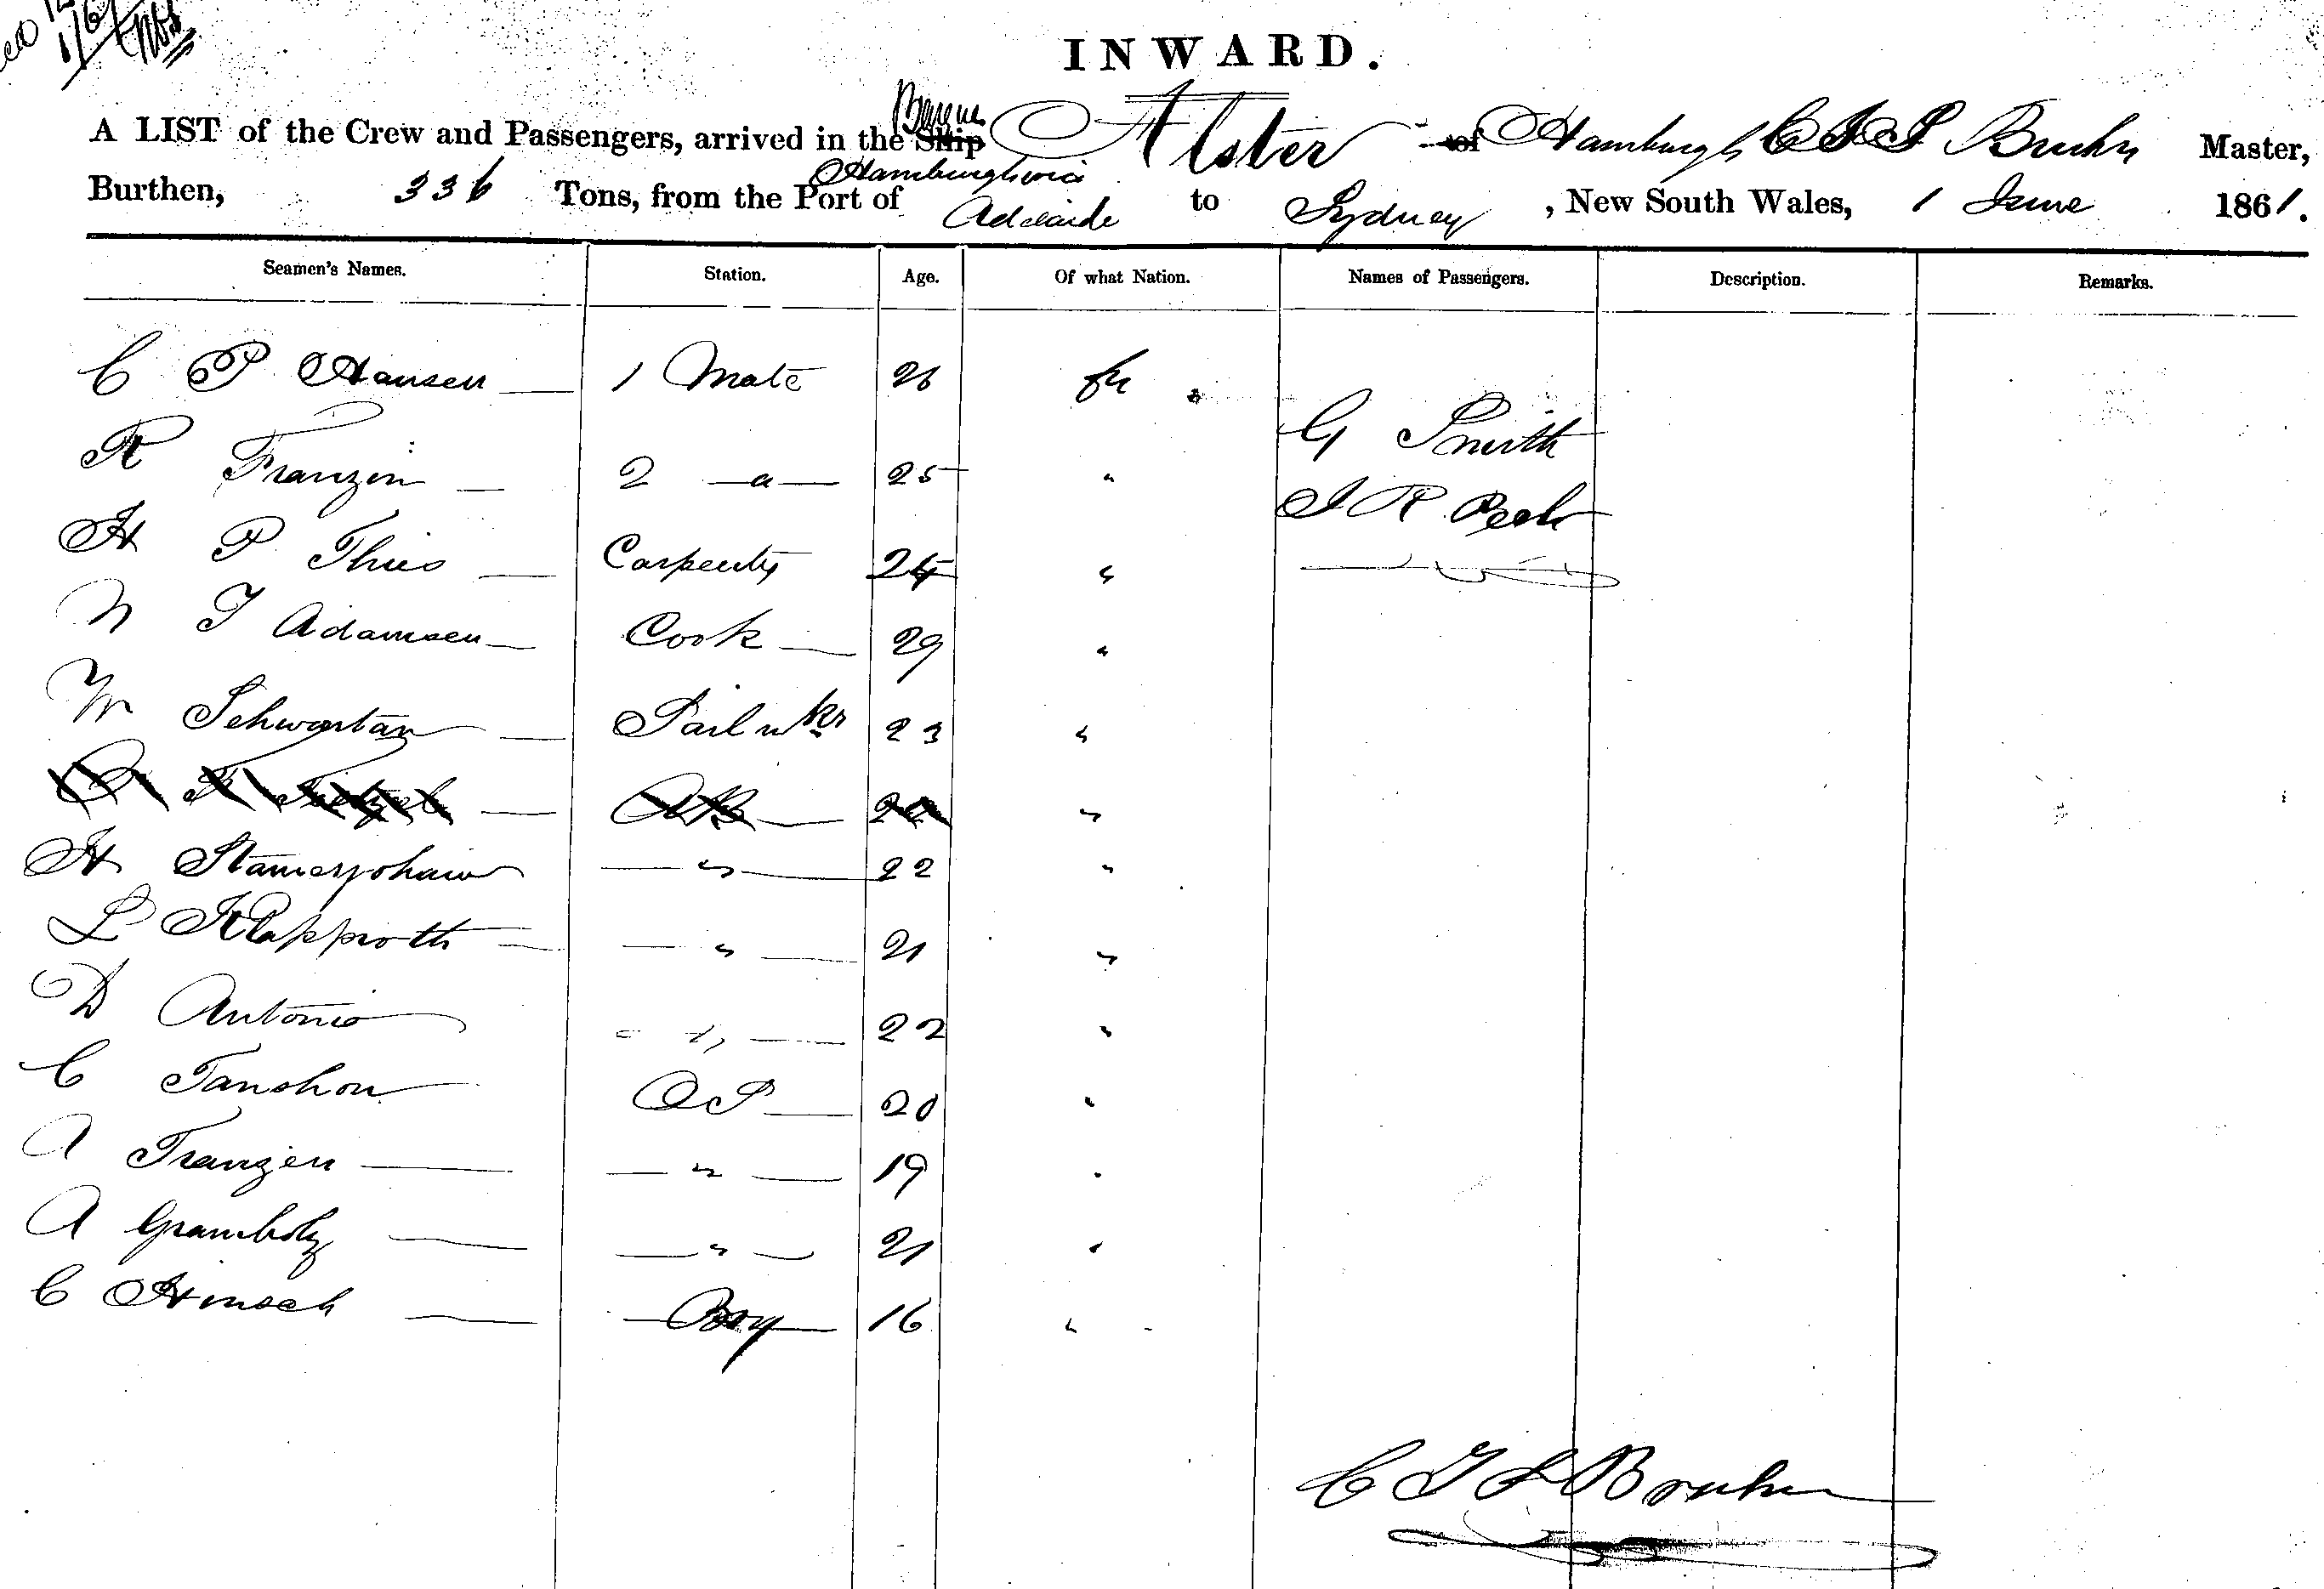 INWARD.
Barque
A LIST of the Crew and Passengers, arrived in the Ship Alster of Hamburgh C J S Bruhn Master,
Hamburgh via
Burthen, 336 Tons, from the Port of Adelaide to Sydney, New South Wales, 1 June 1861.
Seamen's Names. Station. Age. Of what Nation. Names of Passengers. Description. Remarks.
C P Hansen — 1 Mate 26
G Smith
R Franzin — 2 — " — 25 "
J R Peek
H P Thies — Carpenter 24 "
N J Adamsen — Cook — 29 "
W Schwartan — Sailmkr 23 "
AB — "
H — " — 22 "
L Klapproth — — " — 21 "
D Antonio — " — 22 "
C Tanshon OS — 20 "
A Franzen — — " — 19 "
A Gramboly — — " — 21 "
C Hinsch — Boy — 16 "
C J S Bruhn